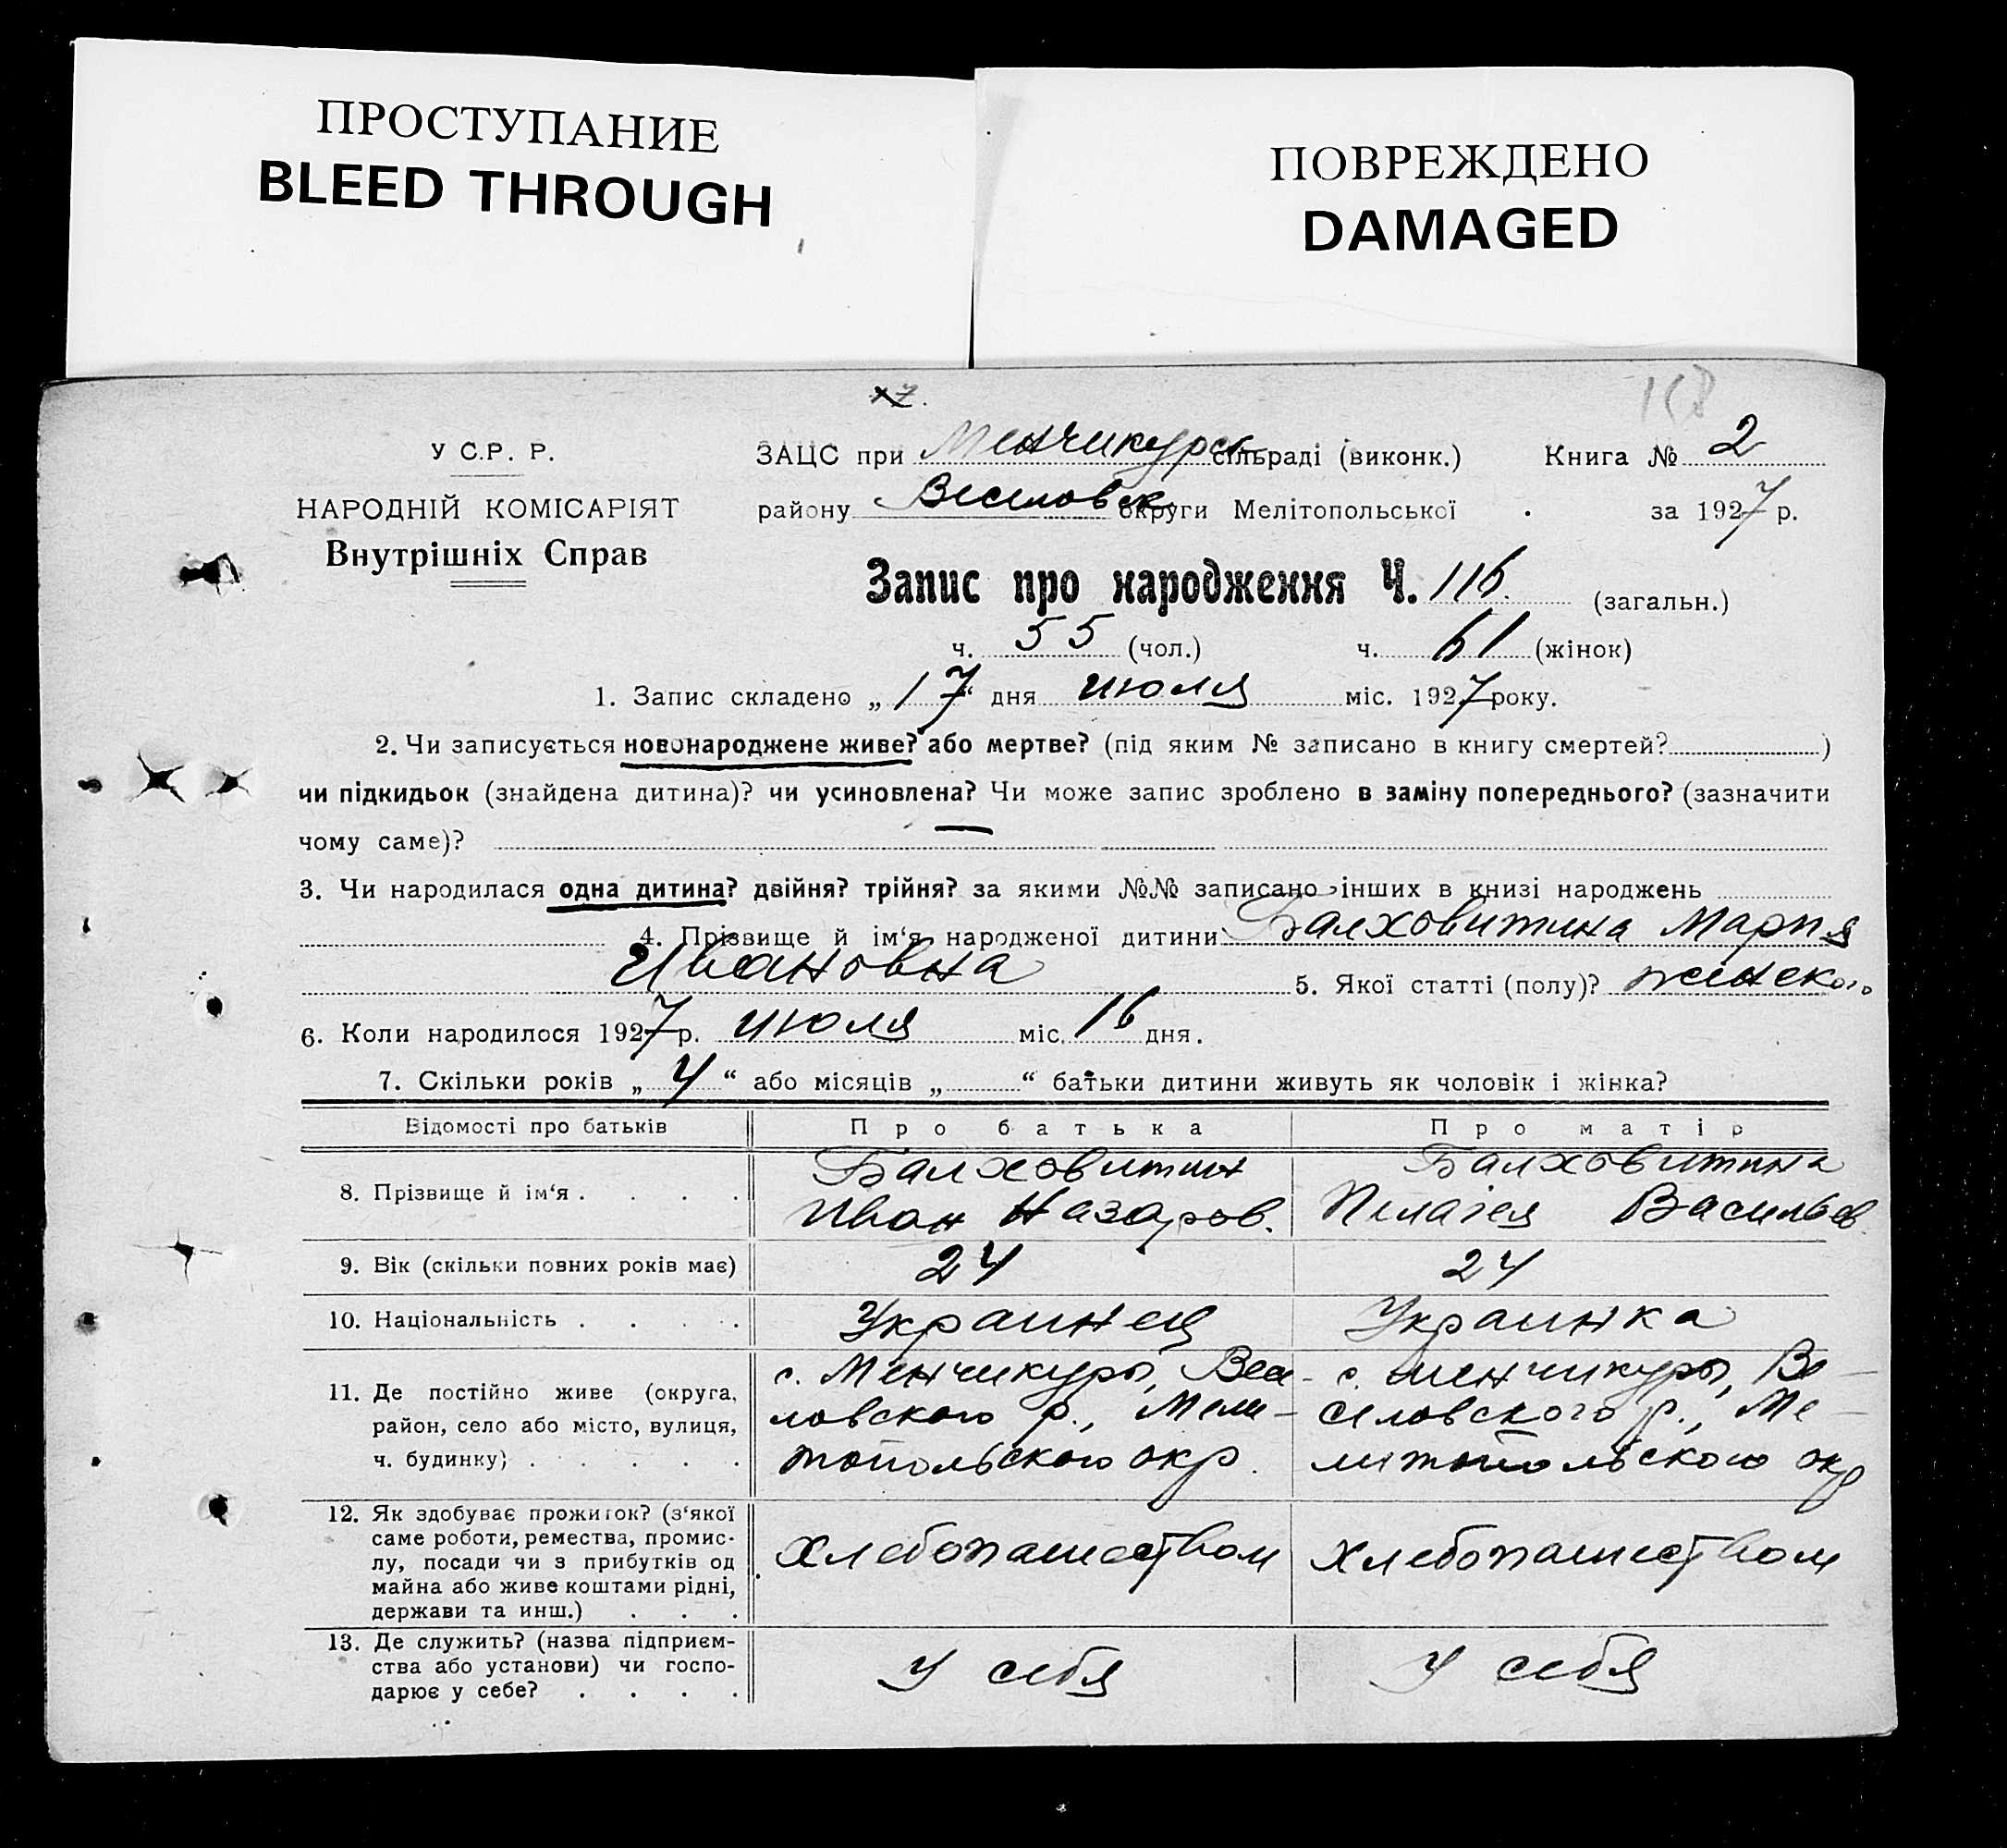 ПРОСТУПАНИЕ
BLEED THROUGH
ПОВРЕЖДЕНО
DAMAGED
У С.Р. Р.
НАРОДНІЙ КОМІСАРІЯТ
Внутрішніх Справ
ЗАЦС при Менчикурск. сільраді (виконк.) Книга № 2
району Веселовск округи Мелітопольської за 1927 р.
Запис про народження Ч. 116. (загальн.)
ч. 55 (чол.) ч. 61 (жінок)
1. Запис складено „17“ дня июля міс. 1927 року.
2. Чи записується новонароджене живе? або мертве? (під яким № записано в книгу смертей? )
чи підкидьок (знайдена дитина)? чи усиновлена? Чи може запис зроблено в заміну попереднього? (зазначити
чому саме)?
3. Чи народилася одна дитина? двійня? трійня? за якими №№ записано інших в книзі народжень
4. Прізвище й ім‘я народженої дитини Балховитина Мария
Ивановна 5. Якої статті (полу)? женского
6. Коли народилося 1927 р. июля міс. 16 дня.
7. Скільки років „4“ або місяців „ “ батьки дитини живуть як чоловік і жінка?
Відомості про батьків Про батька Про матір
8. Прізвище й ім‘я . . . .
Балховитин
Иван Назаров.
Балховитина
Пелагея Васильев.
9. Вік (скільки повних років має) 24 24
10. Національність . . . . Украинец Украинка
11. Де постійно живе (округа,
район, село або місто, вулиця,
ч. будинку) . . . . .
с. Менчикуры, Весе-
ловского р., Мели-
топольского окр.
с. Менчикуры, Ве-
селовского р., Ме-
литопольского окр
12. Як здобуває прожиток? (з‘якої
саме роботи, ремества, промис-
лу, посади чи з прибутків од
майна або живе коштами рідні,
держави та инш.) . . .
Хлебопашеством
Хлебопашеством
13. Де служить? (назва підприєм-
ства або установи) чи госпо-
дарює у себе? . . . .
У себя
У себя